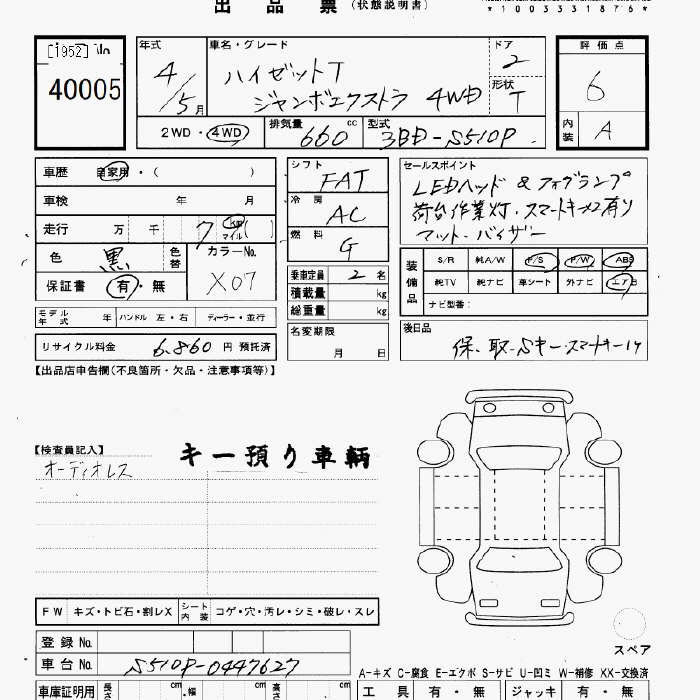 出 品 票 (状態説明書)
*1003331876*
[1952]
40005
年式 4/5月
車名・グレード
ハイゼットT
ジャンボエクストラ 4WD
ドア 2
形状 T
評価点 6
内装 A
2WD・4WD 排気量 660 cc 型式 3BD-S510P
車歴 自家用・( )
車検 年 月
走行 万 千 79 km マイル ( )
色 黒 色替 カラーNo. X07
保証書 有・無
モデル年式 年 ハンドル 左・右 ディーラー・並行
リサイクル料金 6.860 円 預託済
シフト FAT
冷房 AC
燃料 G
乗車定員 2 名
積載量 kg
総重量 kg
名変期限
月 日
セールスポイント
LEDヘッド & フォグランプ
荷台作業灯・スマートキー×2有り
マット・バイザー
装備品
S/R 純A/W P/S P/W ABS
純TV 純ナビ 車シート 外ナビ エアB
ナビ型番:
後日品
保、取、Sキー・スマートキー1ケ
【出品店申告欄(不良箇所・欠品・注意事項等)】
【検査員記入】
オーディオレス
キー預り車輌
FW キズ・トビ石・割レX シート内装 コゲ・穴・汚レ・シミ・破レ・スレ
登録No.
車台No. S510P-0447627
スペア
A-キズ C-腐食 E-エクボ S-サビ U-凹ミ W-補修 XX-交換済
車庫証明用 長さ cm 幅 cm 高さ cm
工具 有・無 ジャッキ 有・無